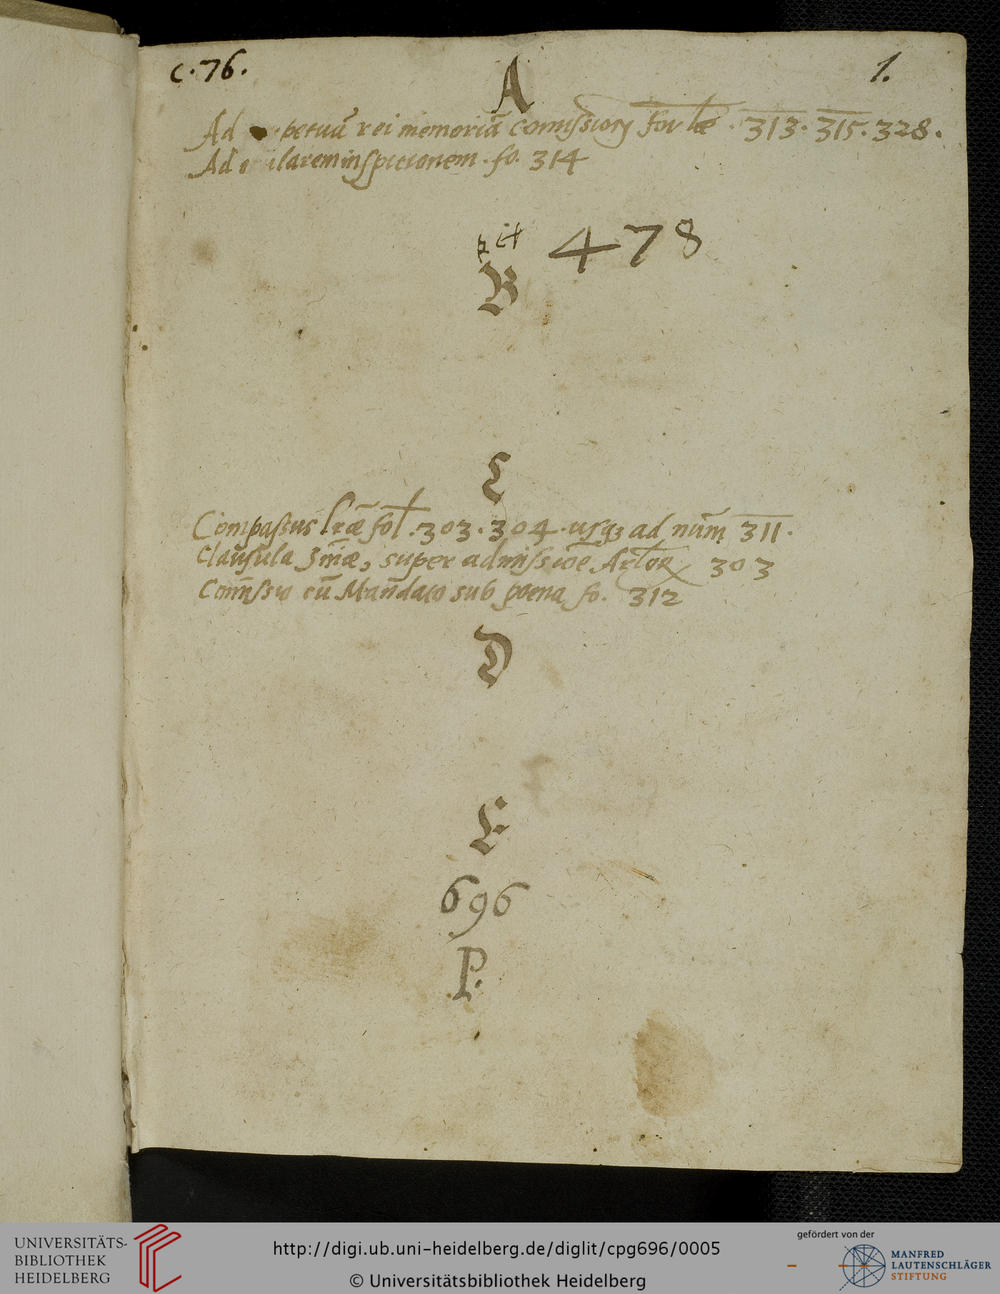 C. 76.
1.
A
Ad petuā rei memoriā comissiony 313. 315. 328.
Ad larem inspectionem. fo. 314
478
B
C
Compassus lr̄æ fol. 303. 304. usq3 ad nūm 311.
Clausula super admissiōe Artor 303
Com̄issio cū Man̄dato sub poena fo. 312
D
E
696
P.
UNIVERSITÄTS-
BIBLIOTHEK
HEIDELBERG
http://digi.ub.uni-heidelberg.de/diglit/cpg696/0005
© Universitätsbibliothek Heidelberg
gefördert von der
MANFRED
LAUTENSCHLÄGER
STIFTUNG